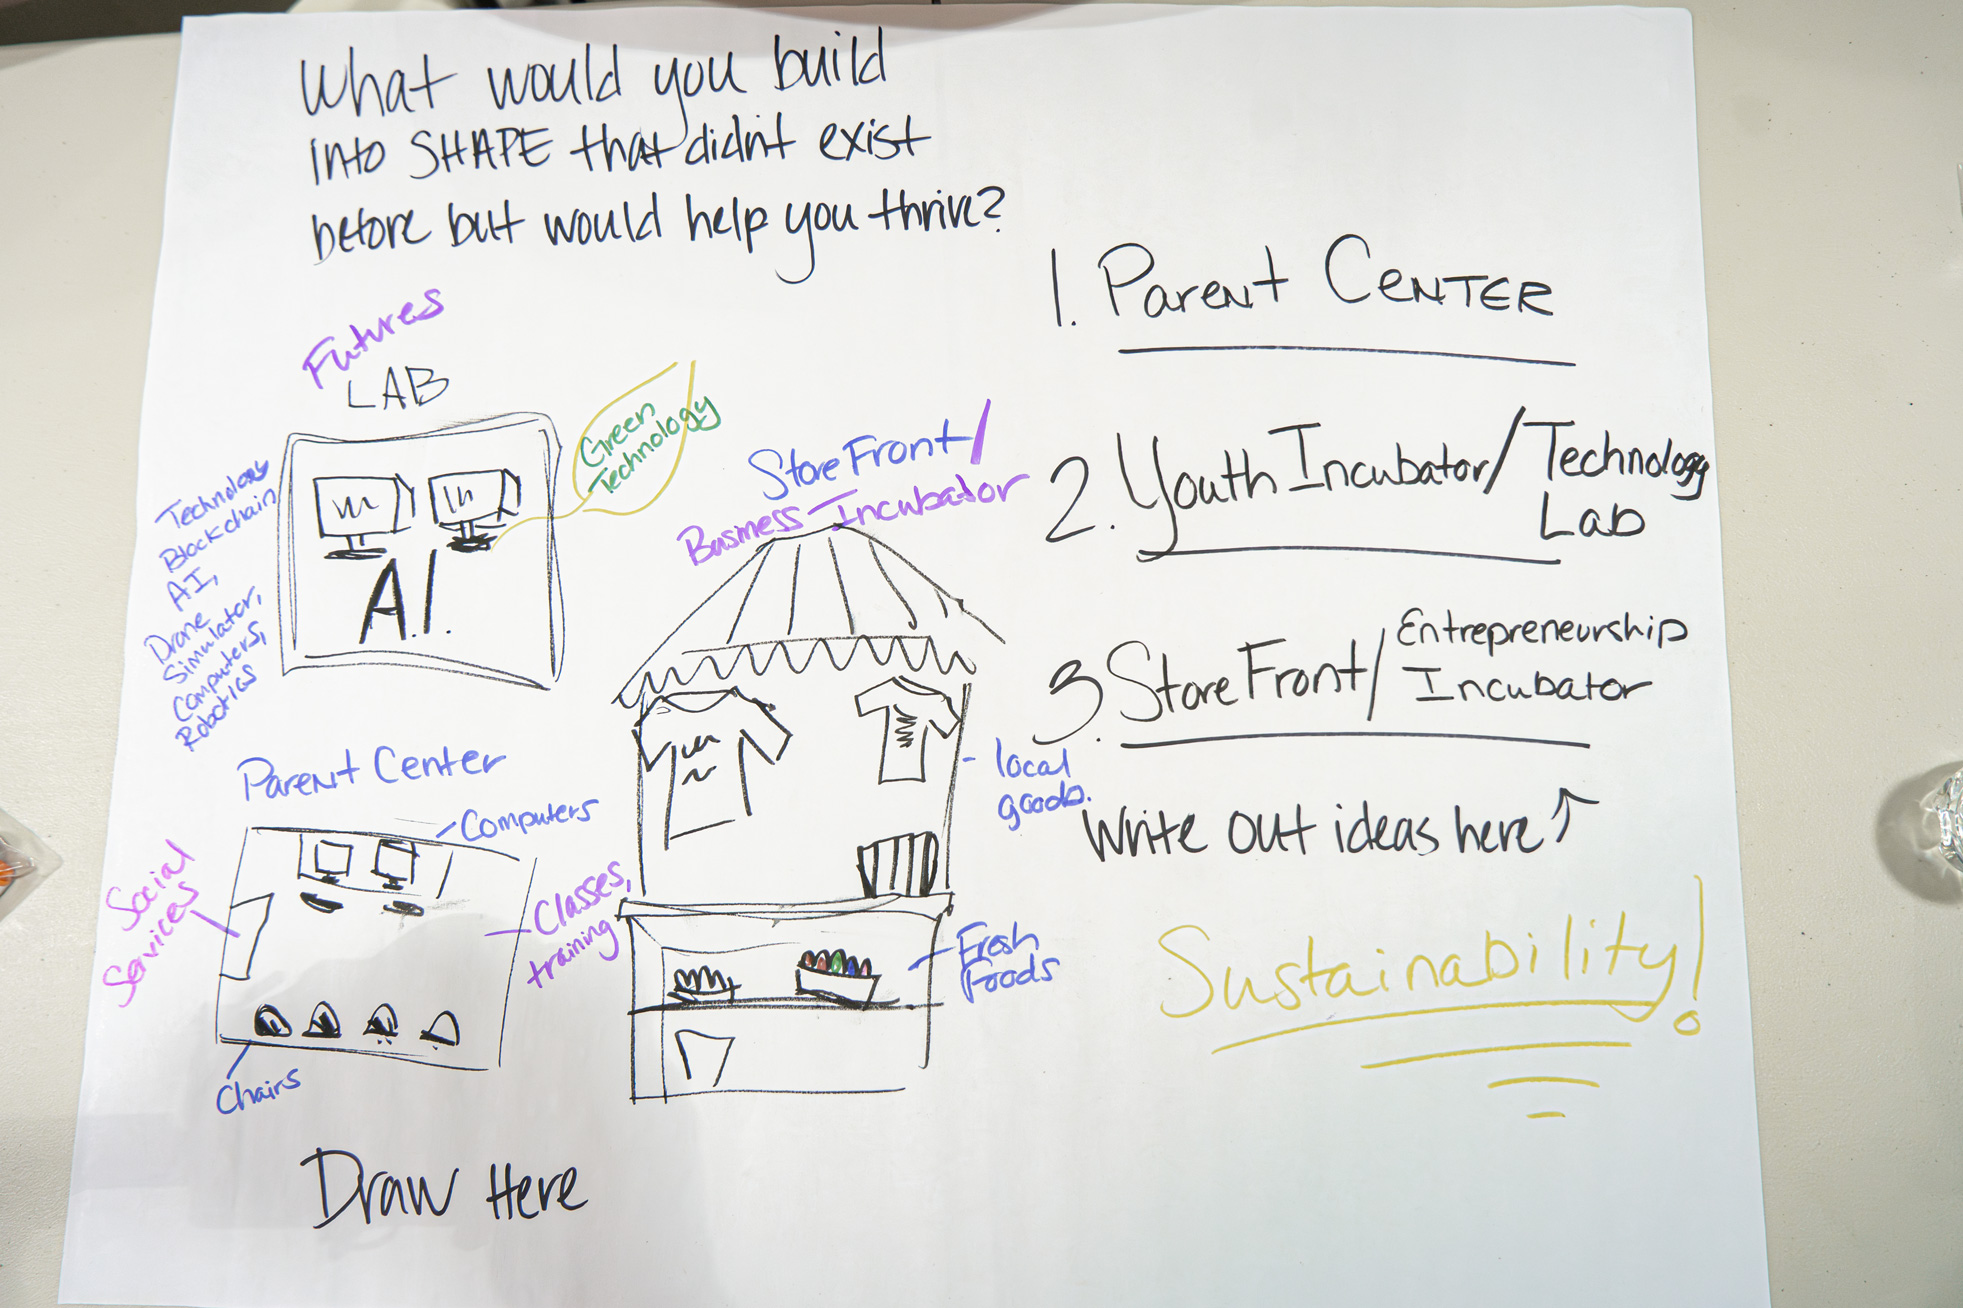 What would you build
into SHAPE that didn't exist
before but would help you thrive?
Futures
LAB
Green
Technology
Technology
Blockchain
AI,
Drone
Simulator,
Computers,
Robotics
A.I.
Store Front/
Business Incubator
local
goods.
Fresh
Foods
Parent Center
Computers
Social
Services
Classes,
training
Chairs
Draw Here
1. Parent CENTER
2. Youth Incubator/Technology
Lab
3. Store Front/Entrepreneurship
Incubator
Write out ideas here
Sustainability!